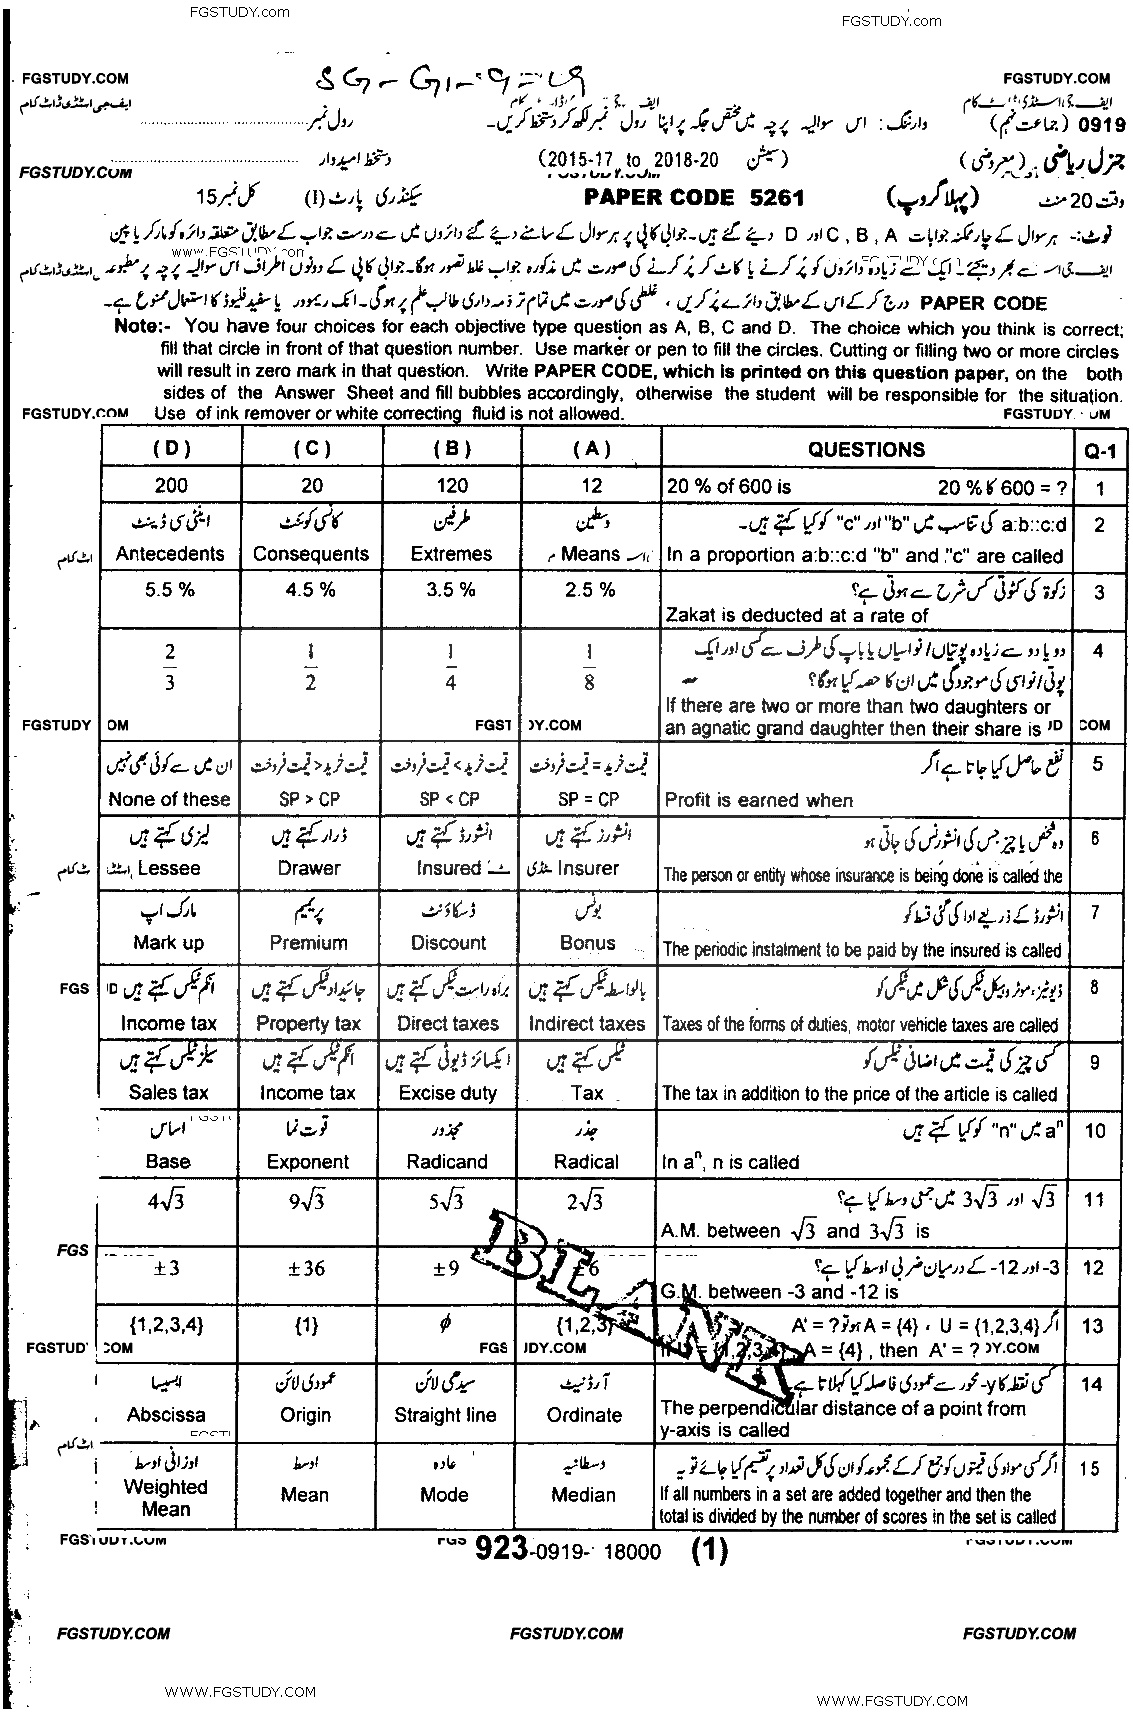 FGSTUDY.com
FGSTUDY.com
SG-G1-9-19
FGSTUDY.COM FGSTUDY.COM
ایف جی اسٹڈی ڈاٹ کام ایف جی اسٹڈی ڈاٹ کام
0919 (جماعت نہم) وارننگ: اس سوالیہ پرچہ میں مختص جگہ پر اپنا رول نمبر لکھ کر دستخط کریں۔ رول نمبر
جنرل ریاضی (معروضی) (سیشن 2015-17 to 2018-20) دستخط امیدوار
FGSTUDY.COM FGSTUDY.COM
وقت 20 منٹ (پہلا گروپ) PAPER CODE 5261 سیکنڈری پارٹ (I) کل نمبر 15
نوٹ:- ہر سوال کے چار ممکنہ جوابات A ، B ، C اور D دیئے گئے ہیں۔ جوابی کاپی پر ہر سوال کے سامنے دیئے گئے دائروں میں سے درست جواب کے مطابق متعلقہ دائرہ کو مارکر یا پین
سے بھر دیجئے۔ ایک سے زیادہ دائروں کو پُر کرنے یا کاٹ کر پُر کرنے کی صورت میں مذکورہ جواب غلط تصور ہوگا۔ جوابی کاپی کے دونوں اطراف اس سوالیہ پرچہ پر مطبوعہ
PAPER CODE درج کر کے اس کے مطابق دائرے پُر کریں ، غلطی کی صورت میں تمام تر ذمہ داری طالب علم پر ہوگی۔ انک ریموور یا سفید فلیوڈ کا استعمال ممنوع ہے۔
Note:- You have four choices for each objective type question as A, B, C and D. The choice which you think is correct;
fill that circle in front of that question number. Use marker or pen to fill the circles. Cutting or filling two or more circles
will result in zero mark in that question. Write PAPER CODE, which is printed on this question paper, on the both
sides of the Answer Sheet and fill bubbles accordingly, otherwise the student will be responsible for the situation.
FGSTUDY.COM Use of ink remover or white correcting fluid is not allowed. FGSTUDY. OM
(D) (C) (B) (A) QUESTIONS Q-1
200 20 120 12 20 % of 600 is 20 % کا 600 = ? 1
اینٹی سی ڈینٹ کانسی کوئنٹ طرفین وسطین a:b::c:d کی تناسب میں "b" اور "c" کو کیا کہتے ہیں۔ 2
Antecedents Consequents Extremes Means In a proportion a:b::c:d "b" and "c" are called
5.5 % 4.5 % 3.5 % 2.5 % زکوٰۃ کی کٹوتی کس شرح سے ہوتی ہے؟ 3
Zakat is deducted at a rate of
2/3 1/2 1/4 1/8 دو یا دو سے زیادہ پوتیاں/نواسیاں یا باپ کی طرف سے کسی اور ایک 4
پوتی/نواسی کی موجودگی میں ان کا حصہ کیا ہوگا؟
If there are two or more than two daughters or
FGSTUDY OM FGST DY.COM an agnatic grand daughter then their share is UD COM
ان میں سے کوئی بھی نہیں قیمت خرید > قیمت فروخت قیمت خرید < قیمت فروخت قیمت خرید = قیمت فروخت نفع حاصل کیا جاتا ہے اگر 5
None of these SP > CP SP < CP SP = CP Profit is earned when
لیزی کہتے ہیں ڈرار کہتے ہیں انشورڈ کہتے ہیں انشورر کہتے ہیں وہ شخص یا چیز جس کی انشورنس کی جاتی ہو 6
Lessee Drawer Insured Insurer The person or entity whose insurance is being done is called the
مارک اپ پریمیم ڈسکاؤنٹ بونس انشورڈ کے ذریعے ادا کی گئی قسط کو 7
Mark up Premium Discount Bonus The periodic instalment to be paid by the insured is called
FGS انکم ٹیکس کہتے ہیں جائیداد ٹیکس کہتے ہیں براہ راست ٹیکس کہتے ہیں بالواسطہ ٹیکس کہتے ہیں ڈیوٹیز، موٹر وہیکل ٹیکس کی شکل میں ٹیکس کو 8
Income tax Property tax Direct taxes Indirect taxes Taxes of the forms of duties, motor vehicle taxes are called
سیلز ٹیکس کہتے ہیں انکم ٹیکس کہتے ہیں ایکسائز ڈیوٹی کہتے ہیں ٹیکس کہتے ہیں کسی چیز کی قیمت میں اضافی ٹیکس کو 9
Sales tax Income tax Excise duty Tax The tax in addition to the price of the article is called
اساس قوت نما مجذور جذر aⁿ میں "n" کو کیا کہتے ہیں 10
Base Exponent Radicand Radical In aⁿ, n is called
4√3 9√3 5√3 2√3 √3 اور 3√3 میں حسابی وسط کیا ہے؟ 11
A.M. between √3 and 3√3 is
FGS
±3 ±36 ±9 ±6 -3 اور -12 کے درمیان ضربی اوسط کیا ہے؟ 12
G.M. between -3 and -12 is
BLANK
{1,2,3,4} {1} ϕ {1,2,3} اگر U = {1,2,3,4} ، A = {4} تو A' = ? 13
FGSTUD COM FGS UDY.COM If U = {1,2,3,4}, A = {4} , then A' = ? DY.COM
ایبسیسا عمودی لائن سیدھی لائن آرڈنیٹ کسی نقطہ کا y-محور سے عمودی فاصلہ کیا کہلاتا ہے 14
Abscissa Origin Straight line Ordinate The perpendicular distance of a point from
y-axis is called
اوزانی اوسط اوسط عادہ وسطانیہ اگر کسی مواد کی قیمتوں کو جمع کر کے مجموعہ کو ان کی کل تعداد پر تقسیم کیا جائے تو یہ 15
Weighted Mean Mean Mode Median If all numbers in a set are added together and then the
total is divided by the number of scores in the set is called
FGSTUDY.COM FGS 923-0919- 18000 (1) FGSTUDY.COM
FGSTUDY.COM FGSTUDY.COM FGSTUDY.COM
WWW.FGSTUDY.COM WWW.FGSTUDY.COM